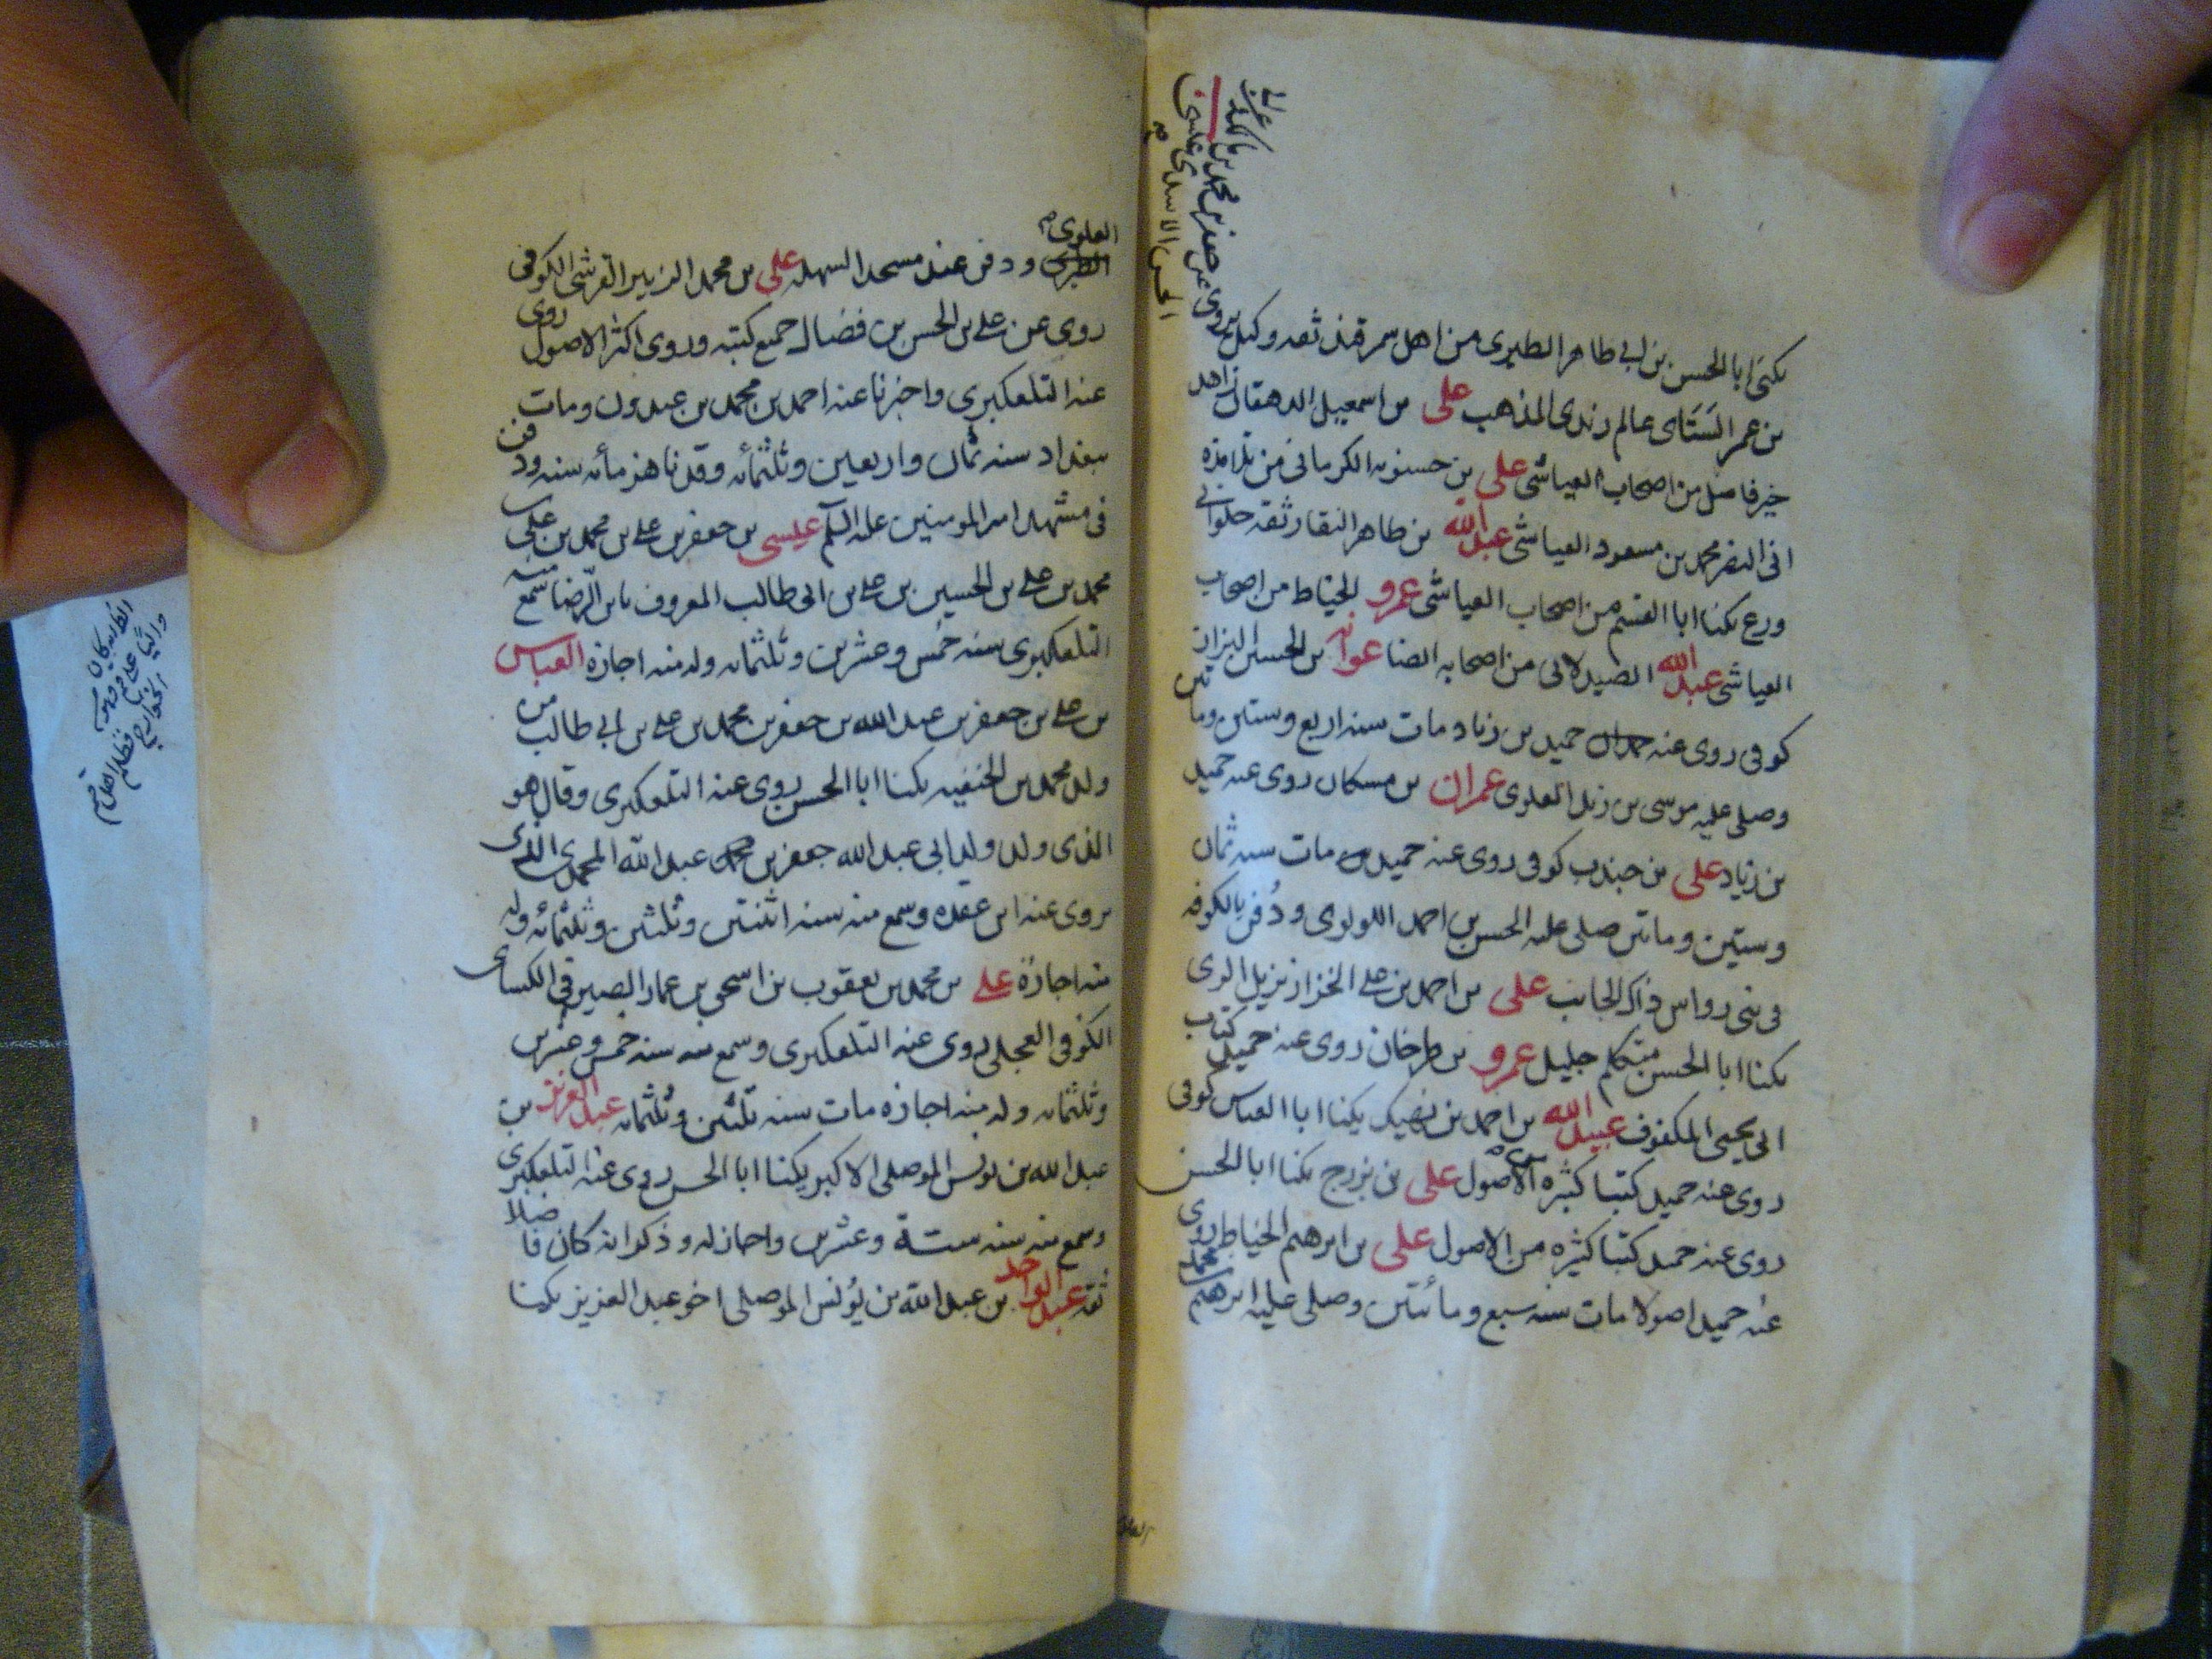 يكنى ابا الحسن بن ابى طاهر الطبرى من اهل سمرقند ثقه وكيل يروى
عن جعفر بن محمد بن مالك
الحسن الاسدى
بن عمر عالم المذهب على بن اسمعيل الدهقان زاهد
خير فاضل من اصحاب العياشى على بن حسنويه الكرمانى من تلامذة
ابى النضر محمد بن مسعود العياشى عبد الله بن طاهر النقار ثقه حلوانى
ورع يكنا ابا القسم من اصحاب العياشى عمرو الخياط من اصحاب
العياشى عبد الله الصيدلانى من اصحابه ايضا عوانه بن الحسين البزاز
كوفى روى عنه حميد بن زياد مات سنه اربع وستين وماتين
وصلى عليه موسى بن زيد العلوى عمران بن مسكان روى عنه حميد
بن زياد على بن جندب كوفى روى عنه حميد مات سنه ثمان
وستين وماتين صلى عليه الحسن بن احمد اللولوى ودُفن بالكوفه
فى بنى رواس ذاك الجانب على بن احمد بن على الخزاز نزيل الرى
يكنا ابا الحسن متكلم جليل عمرو بن طرخان روى عنه حميد كتاب
ابى يحيى المكفوف عبيد الله بن احمد بن نهيك يكنا ابا العباس كوفى
روى عنه حميد كتبا كثيره من الاصول على بن بزرج يكنا ابا الحسن
روى عنه حميد كتبا كثيره من الاصول على بن ابرهيم الخياط روى
عنه حميد اصولا مات سنه سبع ومائتين وصلى عليه ابرهيم بن محمد
العلوى ودفن عند مسجد السهله على بن محمد الزبير القرشى الكوفى
روى عن على بن الحسن بن فضال جميع كتبه وروى اكثر الاصول روى
عنه التلعكبرى واخبرنا عنه احمد بن محمد بن عبدون ومات
ببغداد سنه ثمان واربعين وثلثمائه وقد ناهز مائه سنه ودفن
فى مشهد امير المومنين عليه السلم عيسى بن جعفر بن على بن محمد بن على بن
محمد بن على بن الحسين بن على بن ابى طالب المعروف بابن الرضا سمع منه
التلعكبرى سنه خمس وعشرين وثلثمائه وله منه اجازه العباس
بن على بن جعفر بن عبد الله بن جعفر بن محمد بن على بن ابى طالب من
ولد محمد بن الحنفيه يكنا ابا الحسن روى عنه التلعكبرى وقال هو
الذى ولد ولد ابى عبد الله جعفر بن عبد الله المحمدى الذى
يروى عنه ابن عقده وسمع منه سنه اثنتين وثلثين وثلثمائه وله
منه اجازة على بن محمد بن يعقوب بن اسحق بن عمار الصيرفى الكساى
الكوفى العجلى روى عنه التلعكبرى وسمع منه سنه خمس وعشرين
وثلثمائه وله منه اجازه مات سنه ثلثين وثلثمائه عبد العزيز بن
عبد الله بن يونس الموصلى الاكبر يكنا ابا الحسن روى عنه التلعكبرى
وسمع منه سنه ستة وعشرين واجاز له وذكر انه كان فاضلا
ثقه عبد الواحد بن عبد الله بن يُونس الموصلى اخو عبد العزيز يكنا